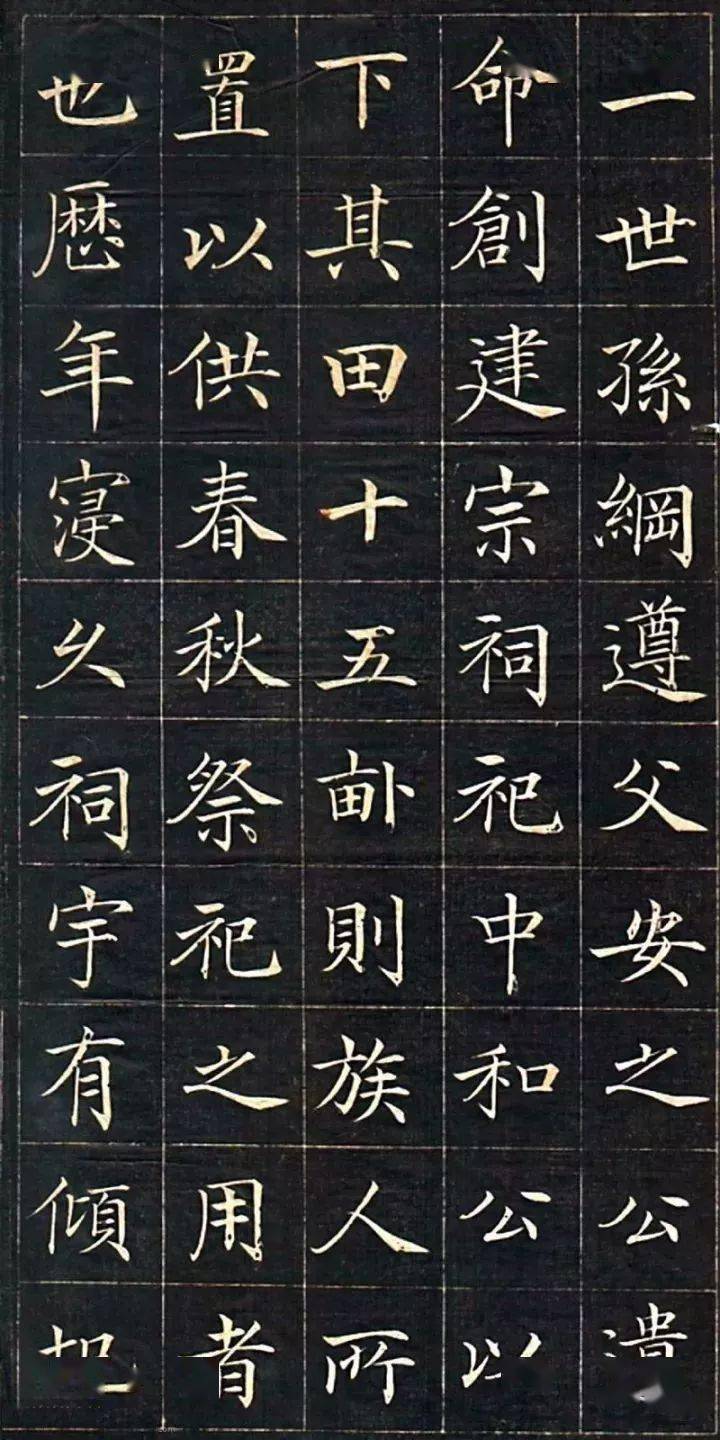 一世孫綱遵父安之公遺
命創建宗祠祀中和公以
下其田十五畝則族人所
置以供春秋祭祀之用者
也歷年寖久祠宇有傾圮